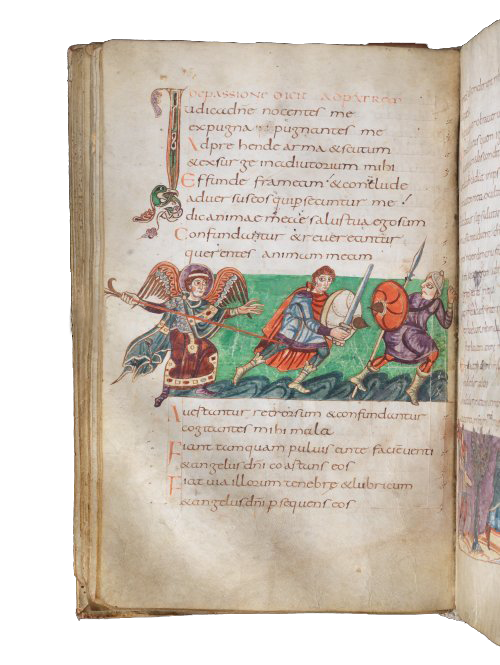 hOCPASSIONE DICIT ADPATREM
Iudica dñe nocentes me
expugna pugnantes me
Adprehende arma &scutum
&exsurge inadiutorium mihi
Effunde frameam &conclude
aduersus eos quipsecuntur me
dic animae meae salustua egosum
Confundantur &reuereantur
querentes animam meam
Auertantur retrorsum &confundantur
cogitantes mihi mala
Fiant tamquam puluis ante faciem uenti
&angelus dñi coartans eos
Fiat uia illorum tenebre &lubricum
&angelus dñi psequens eos